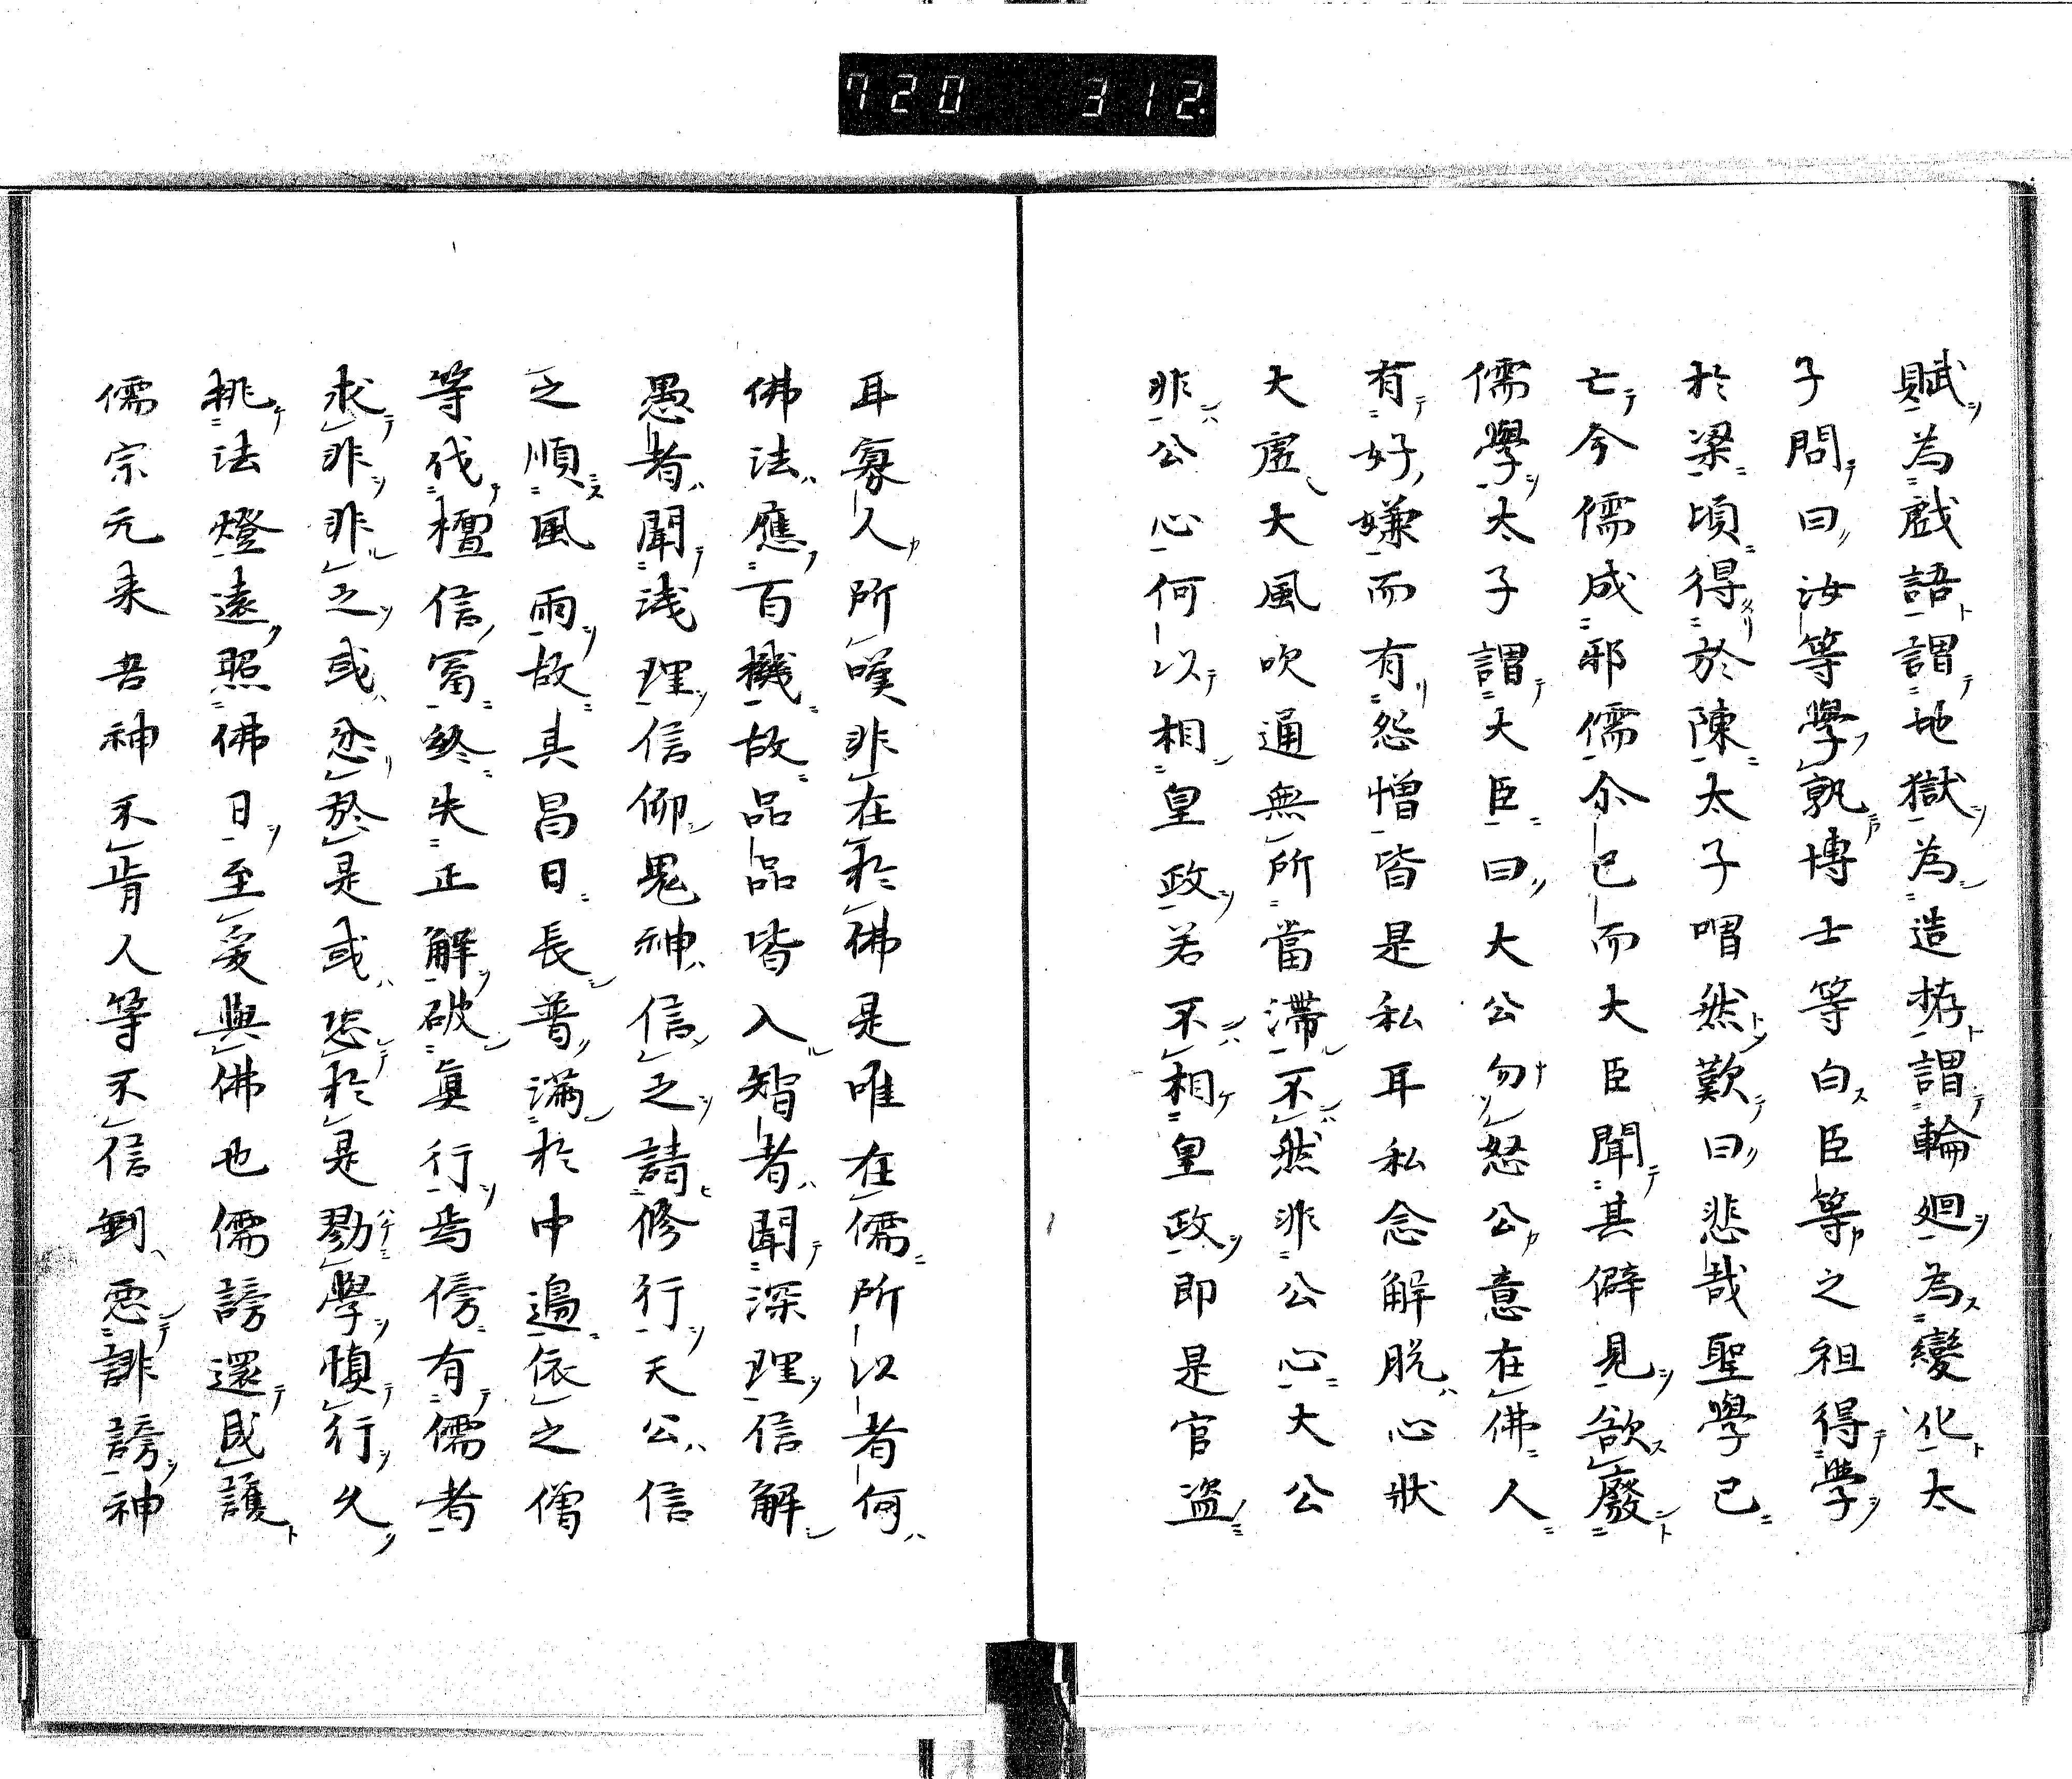 720 312.
賦為戯語謂地獄為造搒謂輪廻為變化太
子問曰汝等學孰博士等白臣等之祖得學
於梁頃得於陳太子喟然歎曰悲哉聖學已
亡今儒成邪儒尒已而大臣聞其僻見欲廢
儒學太子謂大臣曰大公勿怒公意在佛人
有好嫌而有怨憎皆是私耳私念解脱心狀
大虚大風吹通無所當滯不然非公心大公
非公心何以相皇政若不相皇政即是官盗
耳寡人所嘆非在於佛是唯在儒所以者何
佛法應百機故品品皆入智者聞深理信解
愚者聞浅理信仰鬼神信之請修行天公信
之順風雨故其昌日長普満於中邉依之僧
等伐檀信冨終失正解破眞行焉傍有儒者
求非非之或忿於是或恣於是勠學慎行久
挑法燈遠照佛日至爰與佛也儒謗還成護
儒宗元来吾神不肯人等不信到悪誹謗神